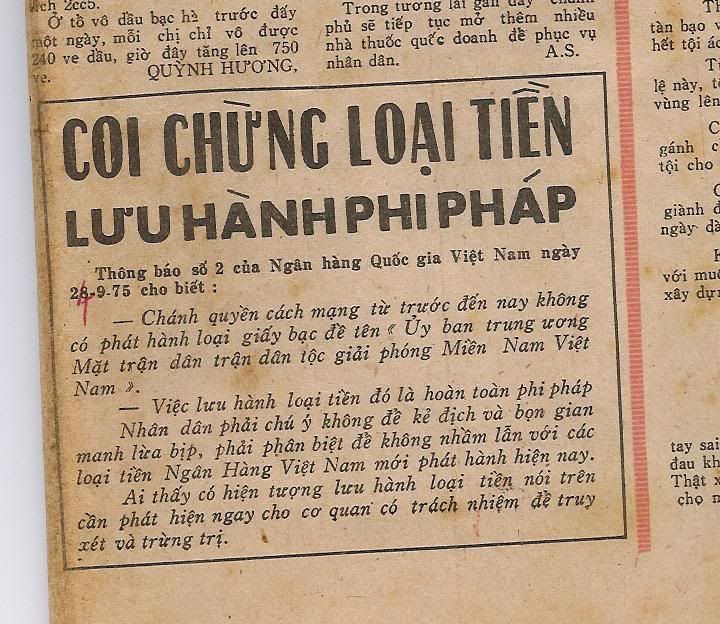 ịch 2cc5.
Ở tồ vô dầu bạc hà trước đây
một ngày, mỗi chị chỉ vô được
240 ve dầu, giờ đây tăng lên 750
ve.
QUỲNH HƯƠNG,
Trong tương lai gần đây chính
phủ sẽ tiếp tục mở thêm nhiều
nhà thuốc quốc doanh để phục vụ
nhân dân.
A.S.
COI CHỪNG LOẠI TIỀN
LƯU HÀNH PHI PHÁP
Thông báo số 2 của Ngân hàng Quốc gia Việt Nam ngày
28-9-75 cho biết :
— Chánh quyền cách mạng từ trước đến nay không
có phát hành loại giấy bạc đề tên « Ủy ban trung ương
Mặt trận dân trận dân tộc giải phóng Miền Nam Việt
Nam ».
— Việc lưu hành loại tiền đó là hoàn toàn phi pháp
Nhân dân phải chú ý không để kẻ địch và bọn gian
manh lừa bịp, phải phân biệt để không nhầm lẫn với các
loại tiền Ngân Hàng Việt Nam mới phát hành hiện nay.
Ai thấy có hiện tượng lưu hành loại tiền nói trên
cần phát hiện ngay cho cơ quan có trách nhiệm để truy
xét và trừng trị.
tàn bạo v
hết tội ác
lệ này, t
vùng lên
gánh c
tội cho
giành đ
ngày dà
với mu
xây dự
tay sai
đau kh
Thật x
chọ n